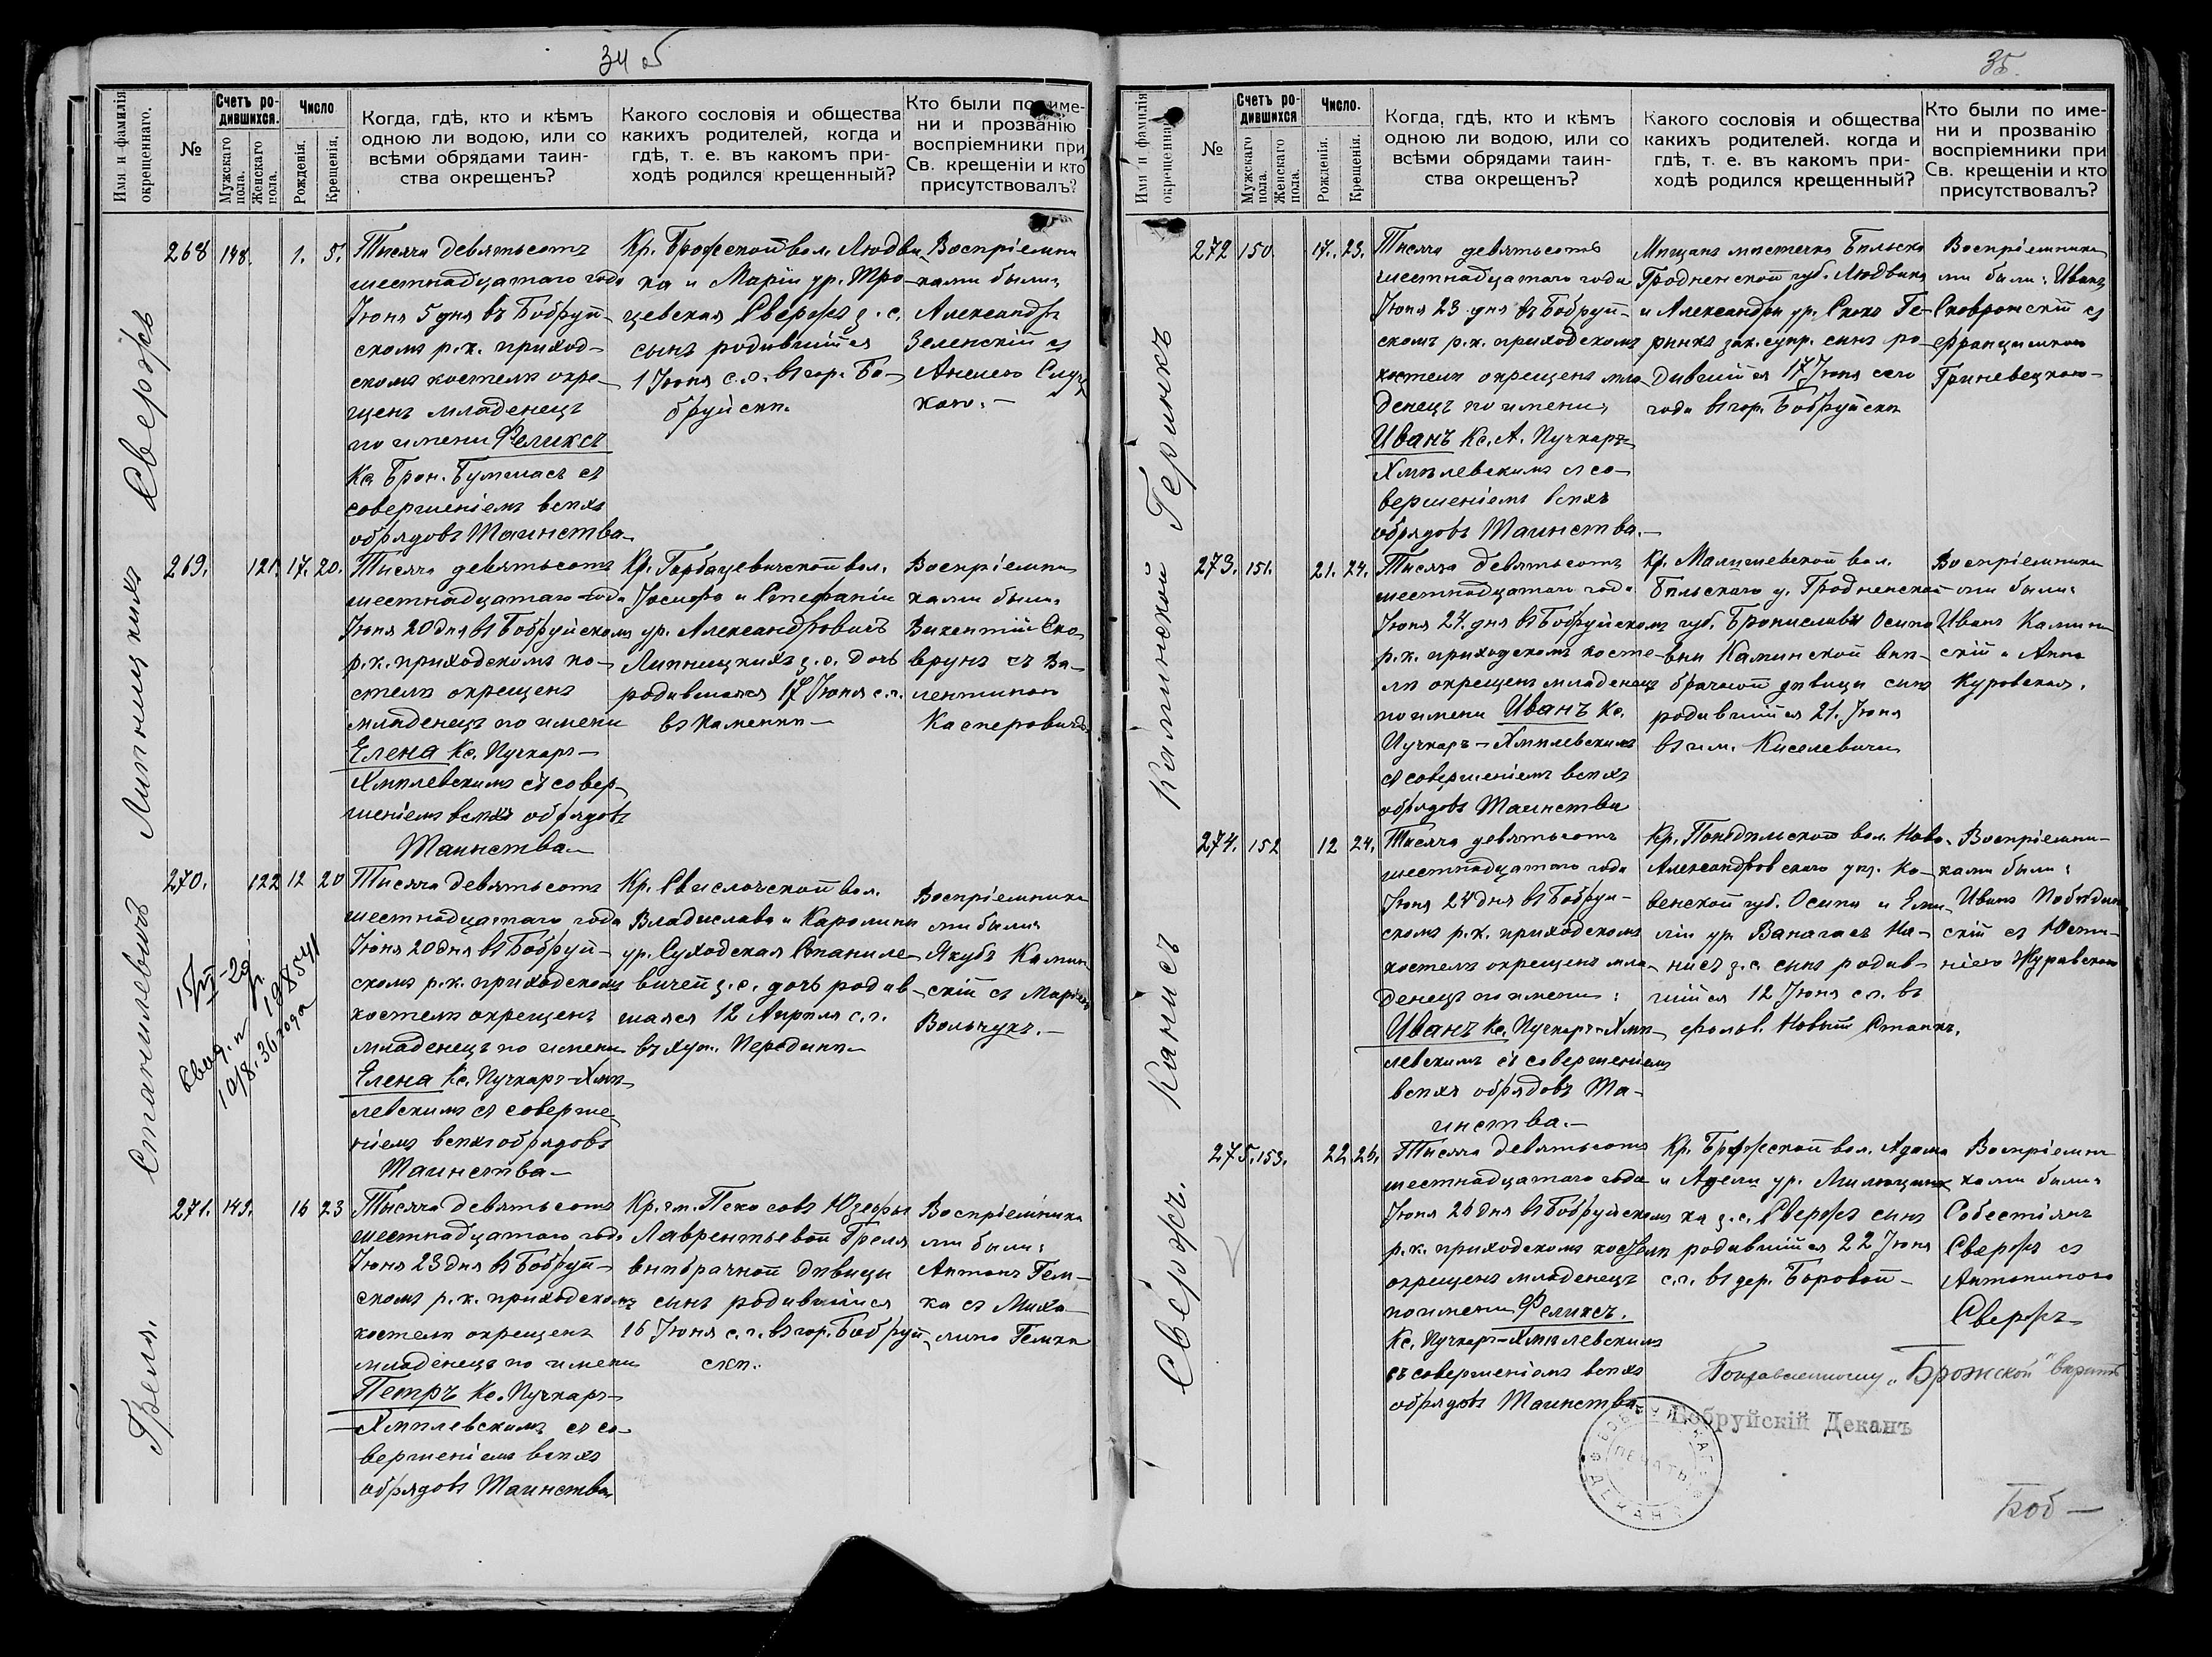 34 об
Имя и фамилія окрещеннаго.
№
Счетъ родившихся.
Мужскаго пола.
Женскаго пола.
Число
Рожденія.
Крещенія.
Когда, гдѣ, кто и кѣмъ
одною ли водою, или со
всѣми обрядами таин-
ства окрещенъ?
Какого сословія и общества
какихъ родителей, когда и
гдѣ, т. е. въ какомъ при-
ходѣ родился крещенный?
Кто были по име-
ни и прозванію
воспріемники при
Св. крещеніи и кто
присутствовалъ?
Свержъ
268 148. 1. 5.
Тысяча девятьсотъ
шестнадцатаго года
Іюня 5 дня въ Бобруй-
скомъ р.к. приход-
скомъ костелѣ окре-
щенъ младенецъ
по имени Феликсъ
Кс. Брон. Бутмасъ съ
совершеніемъ всѣхъ
обрядовъ Таинства
Кр. Брожской вол. Людви-
ка и Маріи ур. Тро-
цевская Свержъ з.с.
сынъ родившійся
1 Іюня с.г. въ гор. Бо-
бруйскѣ.
Воспріемни-
ками были:
Александръ
Зеленскій съ
Анелею Слуц-
кою.
Липницкихъ
269. 121. 17. 20.
Тысяча девятьсотъ
шестнадцатаго года
Іюня 20 дня въ Бобруйскомъ
р.к. приходскомъ ко-
стелѣ окрещенъ
младенецъ по имени
Елена Кс. Пучкаръ-
Хмѣлевскимъ съ совер-
шеніемъ всѣхъ обрядовъ
Таинства
Кр. Горбацевичской вол.
Іосифа и Стефаніи
ур. Александровичъ
Липницкихъ з.с. дочь
родившаяся 17 Іюня с.г.
въ Каменкѣ
Воспріемни-
ками были:
Викентій Ско-
врунъ съ Ва-
лентиною
Касперовичъ
Станилевичъ
270. 122 12 20
Тысяча девятьсотъ
шестнадцатаго года
Іюня 20 дня въ Бобруй-
скомъ р.к. приходскомъ
костелѣ окрещенъ
младенецъ по имени
Елена Кс. Пучкаръ-Хмѣ-
левскимъ съ соверше-
ніемъ всѣхъ обрядовъ
Таинства
Кр. Свислочской вол.
Владислава и Каролины
ур. Суходская Станиле-
вичей з.с. дочь родив-
шаяся 12 Апрѣля с.г.
въ хут. Перединѣ
Воспріемника-
ми были:
Якубъ Камин-
скій съ Маріею
Вольчукъ.
15/VII-29
198541
10/8. 36 года
Греля.
271. 149. 16 23
Тысяча девятьсотъ
шестнадцатаго года
Іюня 23 дня въ Бобруй-
скомъ р.к. приходскомъ
костелѣ окрещенъ
младенецъ по имени
Петръ Кс. Пучкаръ-
Хмѣлевскимъ съ со-
вершеніемъ всѣхъ
обрядовъ Таинства
Кр. гм. Пекосовъ Юзефы
Лаврентьевой Греля
внѣбрачной дѣвицы
сынъ родившійся
16 Іюня с.г. въ гор. Бобруй-
скѣ.
Воспріемника-
ми были:
Антонъ Гем-
ка съ Миха-
линою Гемка
35.
Имя и фамилія окрещеннаго
№
Счетъ родившихся
Мужскаго пола.
Женскаго пола.
Число.
Рожденія.
Крещенія.
Когда, гдѣ, кто и кѣмъ
одною ли водою, или со
всѣми обрядами таин-
ства окрещенъ?
Какого сословія и общества
какихъ родителей. когда и
гдѣ, т. е. въ какомъ при-
ходѣ родился крещенный?
Кто были по име-
ни и прозванію
воспріемники при
Св. крещеніи и кто
присутствовалъ?
Геринкъ
272 150. 17. 23.
Тысяча девятьсотъ
шестнадцатаго года
Іюня 23 дня въ Бобруй-
скомъ р.к. приходскомъ
костелѣ окрещенъ мла-
денецъ по имени
Иванъ Кс. А. Пучкаръ-
Хмѣлевскимъ съ со-
вершеніемъ всѣхъ
обрядовъ Таинства.
Мѣщанъ мѣстечка Бѣльска
Гродненской губ. Людвика
и Александры ур. Скоко Ге-
ринкъ зак. супр. сынъ ро-
дившійся 17 Іюня сего
года въ гор. Бобруйскѣ
Воспріемника-
ми были: Иванъ
Сковронскій съ
Францишкою
Гриневецкою
Каминской
273. 151. 21. 24.
Тысяча девятьсотъ
шестнадцатаго года
Іюня 24. дня въ Бобруйскомъ
р.к. приходскомъ косте-
лѣ окрещенъ младенецъ
по имени Иванъ Кс.
Пучкаръ-Хмѣлевскимъ
съ совершеніемъ всѣхъ
обрядовъ Таинства
Кр. Малишевской вол.
Бѣльскаго у. Гродненской
губ. Брониславы Осипо-
вны Каминской внѣ-
брачной дѣвицы сынъ
родившійся 21. Іюня
въ им. Киселевичи
Воспріемника-
ми были:
Иванъ Камин-
скій и Анна
Куровская.
Канисъ
274. 152 12 24.
Тысяча девятьсотъ
шестнадцатаго года
Іюня 24 дня въ Бобруй-
скомъ р.к. приходскомъ
костелѣ окрещенъ мла-
денецъ по имени:
Иванъ Кс. Пучкаръ-Хмѣ-
левскимъ съ совершеніемъ
всѣхъ обрядовъ Та-
инства.
Кр. Понедѣльской вол. Ново-
Александровскаго уѣз. Ко-
венской губ. Осипа и Еми-
ліи ур. Ванагасъ Ка-
нисъ з.с. сынъ родив-
шійся 12 Іюня с.г. въ
фольв. Новый Станкъ.
Воспріемни-
ками были:
Иванъ Побѣдин-
скій съ Юсти-
ніею Журавскою
Свержъ.
275. 153. 22 26.
Тысяча девятьсотъ
шестнадцатаго года
Іюня 26 дня въ Бобруйскомъ
р.к. приходскомъ костелѣ
окрещенъ младенецъ
по имени Феликсъ.
Кс. Пучкаръ-Хмѣлевскимъ
съ совершеніемъ всѣхъ
обрядовъ Таинства
Кр. Брожской вол. Адама
и Адели ур. Милющин-
ка з.с. Свержъ сынъ
родившійся 22 Іюня
с.г. въ дер. Боровой
Воспріемни-
ками были:
Собестіянъ
Свержъ съ
Антониною
Свержъ
Поправленному „Брожской" вѣрить
Бобруйскій Деканъ
ПЕЧАТЬ
Боб